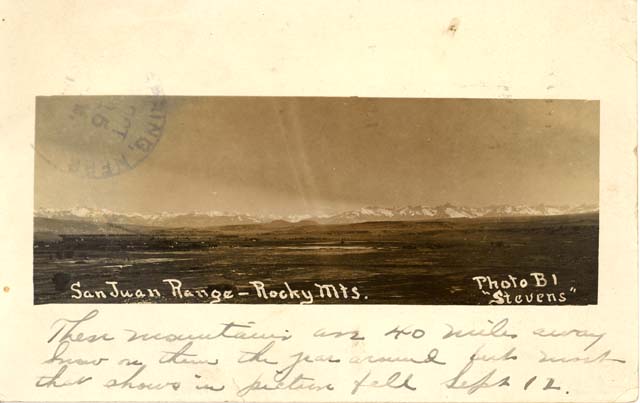 RING, NEBR
OCT
15
San Juan Range - Rocky Mts.
Photo By
"Stevens"
These mountains are 40 miles away
Snow on them the year around but most
that shows in picture fell Sept 12.